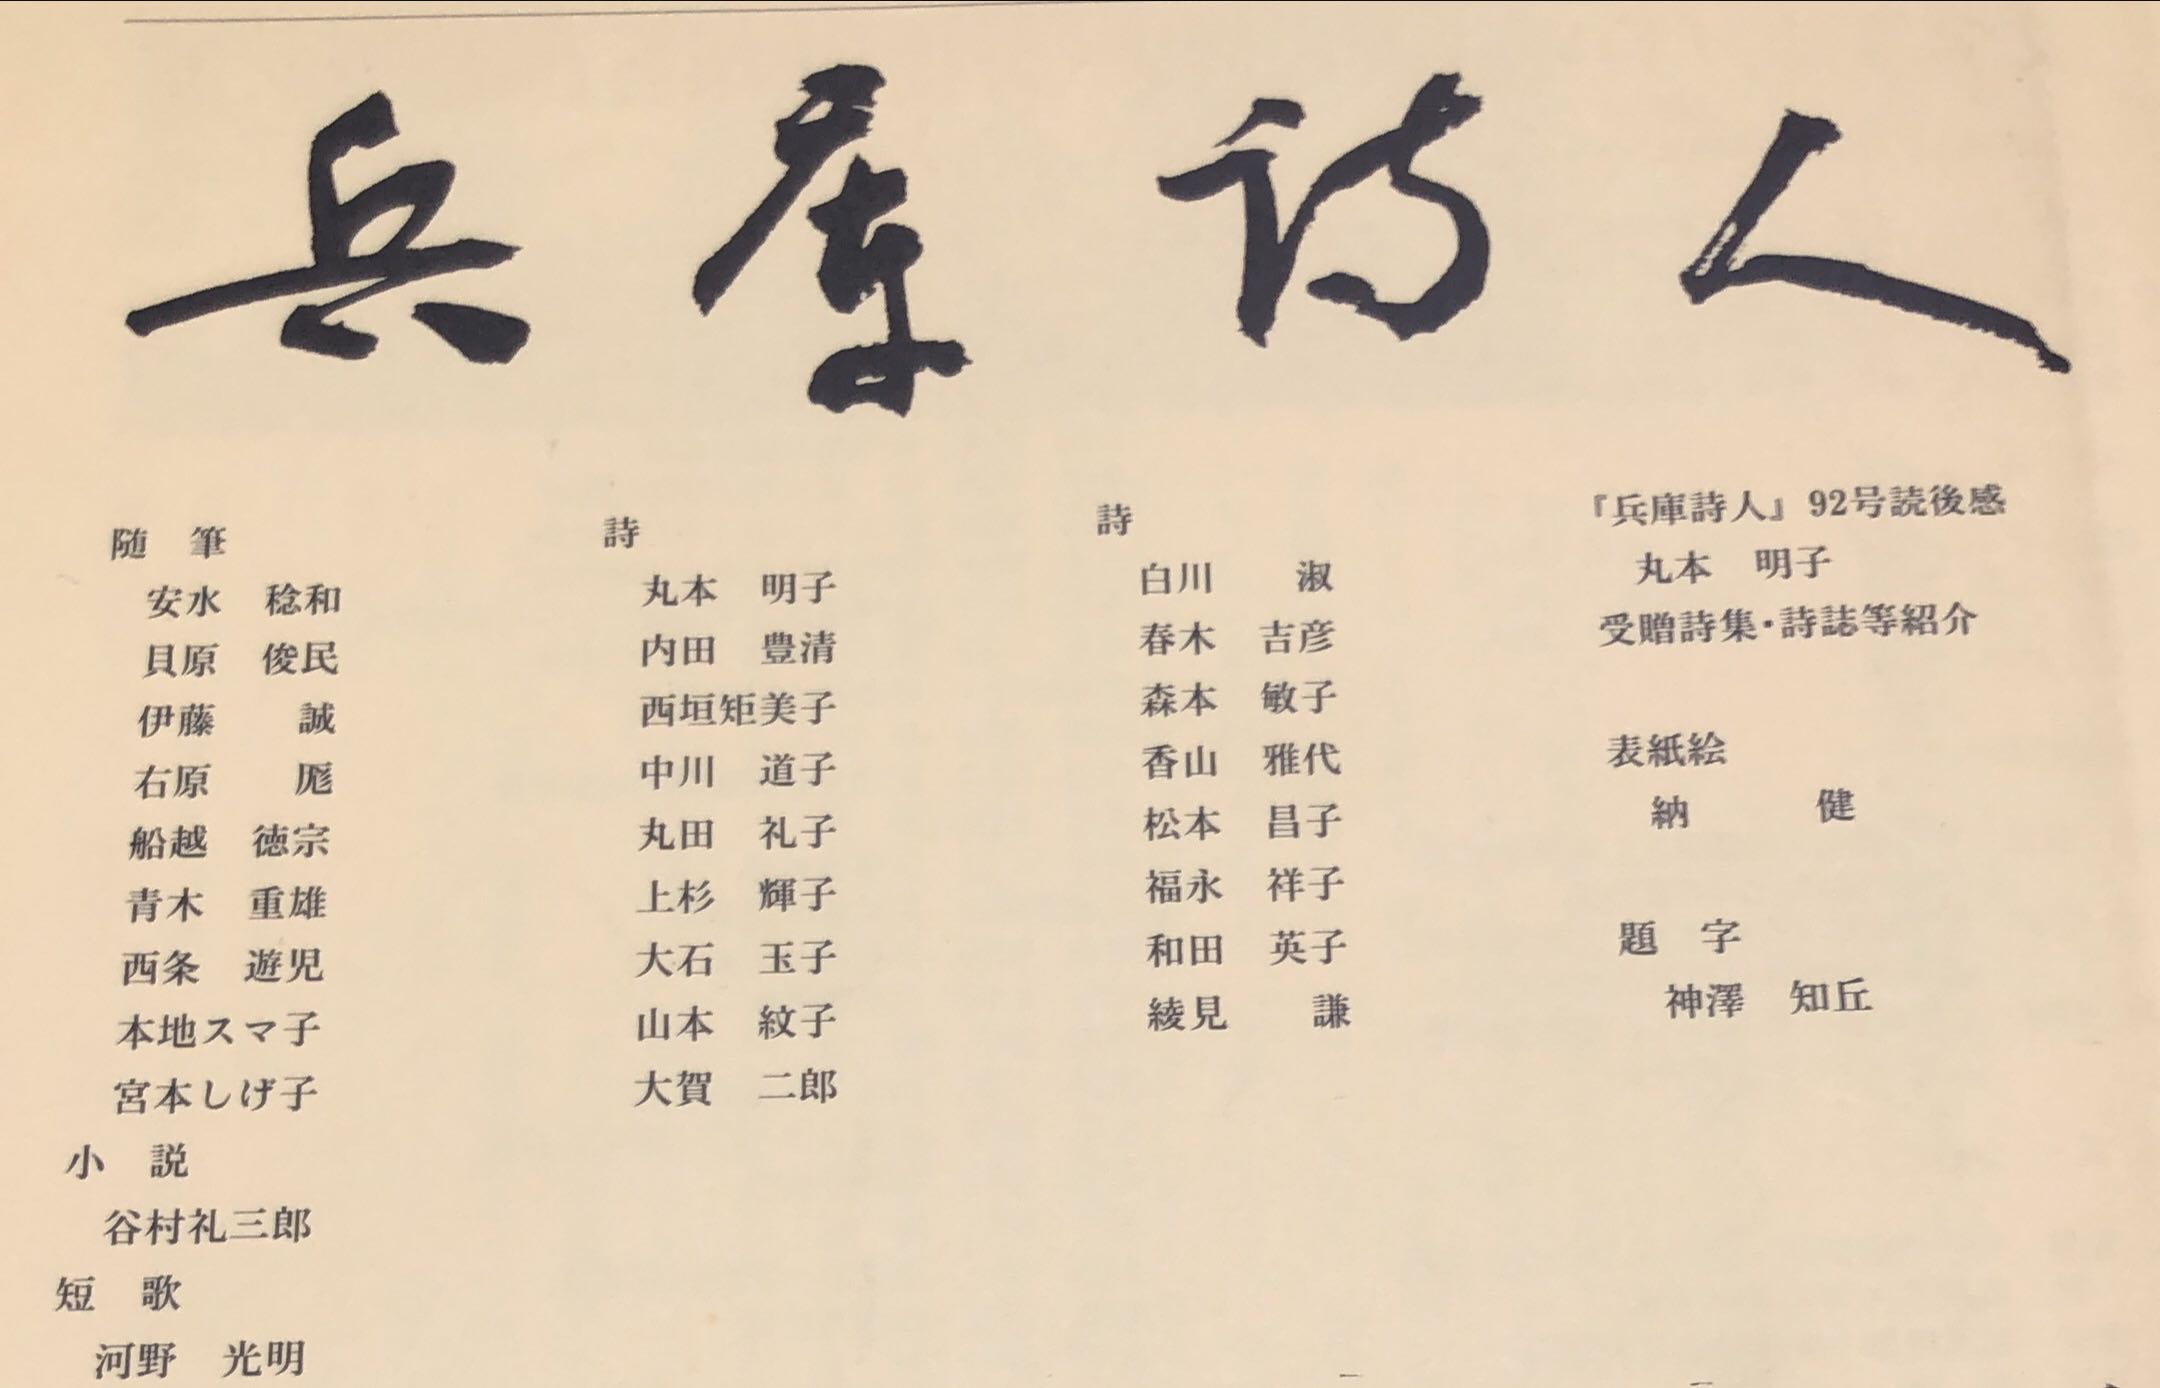 兵庫詩人
随　筆
安水　稔和
貝原　俊民
伊藤　　誠
右原　　厖
船越　徳宗
青木　重雄
西条　遊児
本地スマ子
宮本しげ子
小　説
谷村礼三郎
短　歌
河野　光明
詩
丸本　明子
内田　豊清
西垣矩美子
中川　道子
丸田　礼子
上杉　輝子
大石　玉子
山本　紋子
大賀　二郎
詩
白川　　淑
春木　吉彦
森本　敏子
香山　雅代
松本　昌子
福永　祥子
和田　英子
綾見　　謙
『兵庫詩人』92号読後感
丸本　明子
受贈詩集・詩誌等紹介
表紙絵
納　　　健
題　字
神澤　知丘